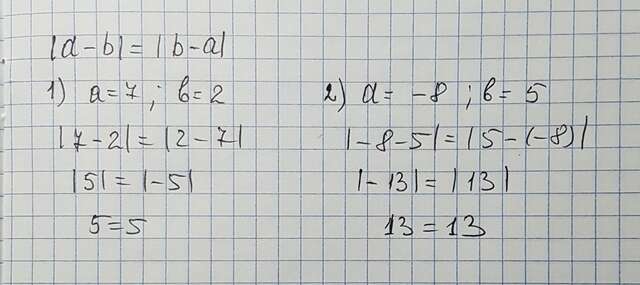 |a-b|=|b-a|
1) a=7; b=2
|7-2|=|2-7|
|5|=|-5|
5=5
2) a= -8; b= 5
|-8-5|=|5-(-8)|
|-13|=|13|
13=13